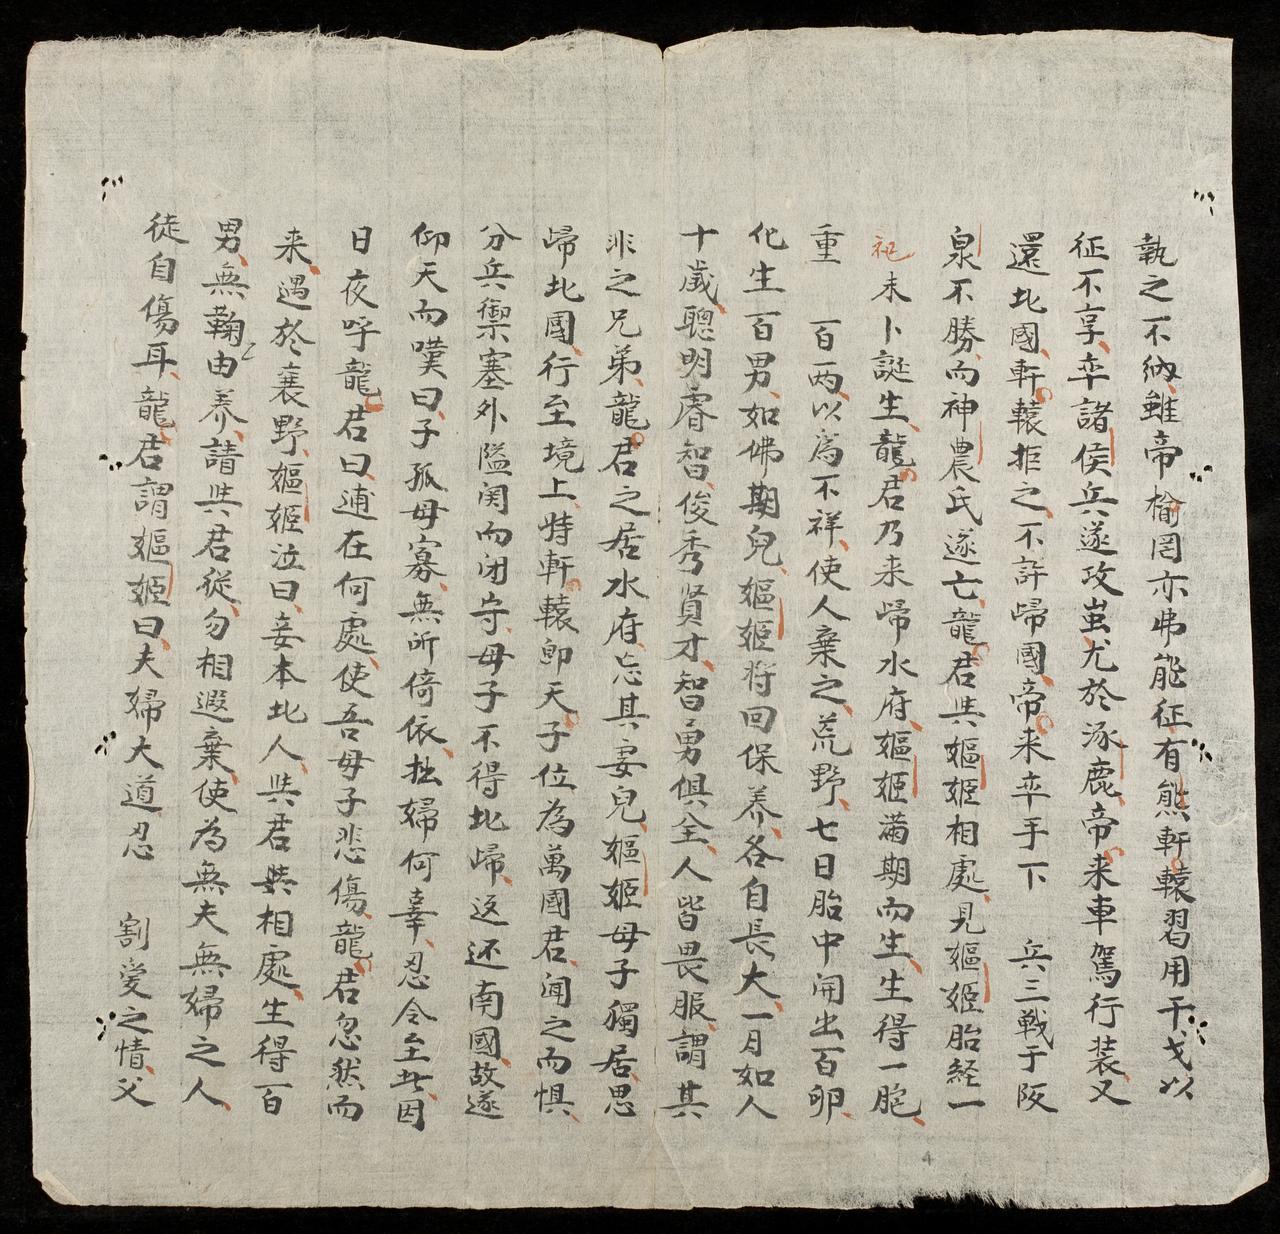 執之不納雖帝榆罔亦弗能征有熊軒轅習用干戈以
征不享率諸侯兵遂攻蚩尤於涿鹿帝来車駕行装又
還北國軒轅拒之不許帰國帝来率手下 兵三戰于阪
泉不勝而神農氏遂亡龍君共嫗姬相處見嫗姬胎経一
祀未卜誕生龍君乃来帰水府嫗姬滿期而生生得一胞
重 一百两以爲不祥使人棄之荒野七日胎中開出百卵
化生百男如佛期兒嫗姬将回保养各自長大一月如人
十歲聰明睿智俊秀賢才智勇俱全人皆畏服謂其
非之兄弟龍君之居水府忘其妻兒嫗姬母子獨居思
帰北國行至境上時軒轅即天子位為萬國君闻之而惧
分兵禦塞外隘関而闭守母子不得北帰返还南國故遂
仰天而嘆曰子孤母寡無所倚依拙婦何辜忍令至此因
日夜呼龍君曰逋在何處使吾母子悲傷龍君忽然而
来遇於襄野嫗姬泣曰妾本北人共君共相處生得百
男無鞠由养請共君從勿相遐棄使為無夫無婦之人
徒自傷耳龍君謂嫗姬曰夫婦大道忍 割愛之情父